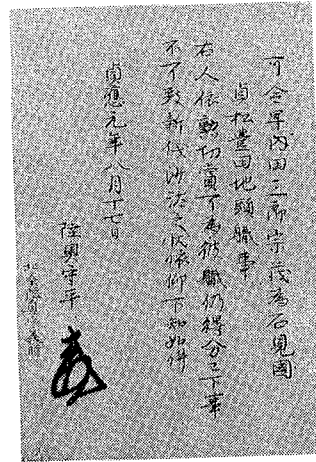 可令早内田三郎宗茂為石見國
貞松豊田地頭職事
右人依勲功賞可為彼職仍得分已下事
不可致新儀沙汰之状依仰下知如件
貞應元年八月十七日
陸奥守平
北条陸奥守義時